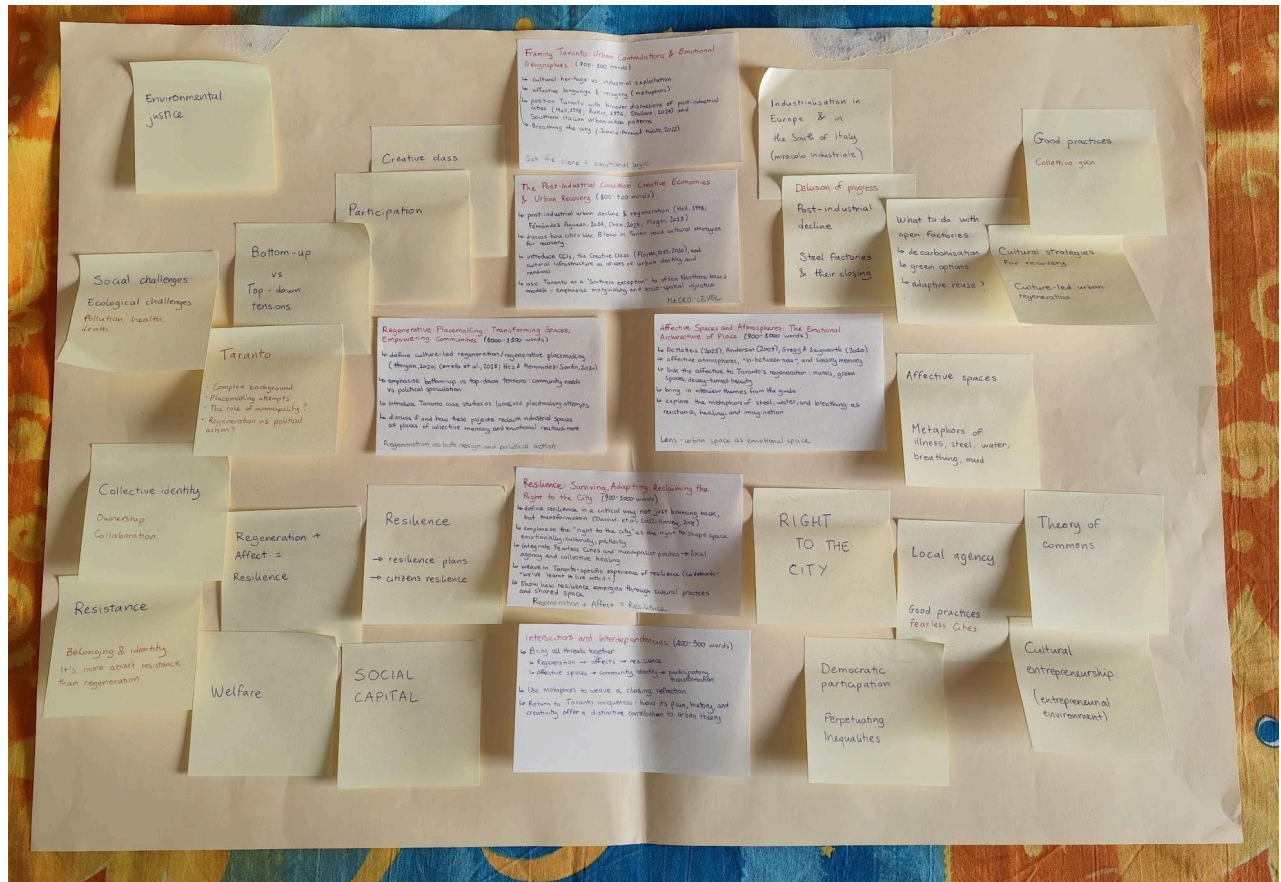 Environmental
justice
Creative class
Participation
Bottom-up
vs
Top-down
tensions
Social challenges
Ecological challenges
Pollution, health,
death
Taranto
· Complex background
· Placemaking attempts
· The role of municipality?
· Regeneration as political
action?
Collective identity
Ownership
Collaboration
Regeneration +
Affect =
Resilience
Resilience
→ resilience plans
→ citizens resilience
Resistance
Belonging & identity
It's more about resistance
than regeneration
Welfare
SOCIAL
CAPITAL
Framing Taranto: Urban Contradictions & Emotional
Geographies (700-800 words)
↳ cultural heritage vs industrial exploitation
↳ affective language & imagery (metaphors)
↳ position Taranto with broader discussions of post-industrial
cities (Hall, 1998; 1996; 2024) and
Southern Italian urbanisation patterns
↳ Breathing the city
Set the scene + emotional logic
The Post-Industrial Condition: Creative Economies
& Urban Recovery (800-900 words)
↳ post-industrial urban decline & regeneration (Hall, 1998;
Fernández Águeda, 2014; Chen, 2023; Plöger, 2013)
↳ discuss how cities like Bilbao or Torino used cultural strategies
for recovery
↳ introduce CCIs, the Creative Class (Florida, and
cultural infrastructure as drivers of urban identity and
renewal
↳ use Taranto as a "Southern exception" to often Northern-based
models - emphasise marginality and socio-spatial injustice
MACRO-LEVEL
Regenerative Placemaking: Transforming Spaces,
Empowering Communities (1000-1100 words)
↳ define culture-led regeneration/regenerative placemaking
2018; Hes & Hernandez-Santin, 2020)
↳ emphasise bottom-up vs top-down tensions: community needs
vs political speculation
↳ introduce Taranto case studies as localised placemaking attempts
↳ discuss if and how these projects reclaim industrial spaces
as places of collective memory and emotional reattachment
Regeneration as both design and political action
Affective Spaces and Atmospheres: The Emotional
Architecture of Place (900-1000 words)
↳ De Matteis (2021), Anderson (2009), Gregg & Seigworth (2010)
↳ affective atmospheres, "in-between-ness", and sensory memory
↳ link the affective to Taranto's regeneration: murals, green
spaces, decay-turned beauty
↳ bring in interview themes from the guide
↳ explore the metaphors of steel, water, and breathing as
resistance, healing and imagination
Lens - urban space as emotional space
Resilience: Surviving, Adapting, Reclaiming the
Right to the City (900-1000 words)
↳ define resilience in a critical way not just bouncing back,
but transformation (Davoudi et al., 2012; Harvey, 2008)
↳ emphasise the "right to the city" as the right to shape space
emotionally, culturally, politically
↳ integrate Fearless Cities and municipalist politics → local
agency and collective healing
↳ weave in Taranto-specific experience of resilience
"we've learnt to live with it"
↳ Show how resilience emerges through cultural practices
and shared space
Regeneration + Affect = Resilience
Intersections and Interdependencies (400-500 words)
↳ Bring all threads together
↳ Regeneration → affects → resilience
↳ Affective spaces → community identity → participatory
transformation
↳ Use metaphors to weave a closing reflection
↳ Return to Taranto uniqueness: how its pain, history, and
creativity offer a distinctive contribution to urban theory
Industrialisation in
Europe & in
the South of Italy
(miracolo industriale)
Delusion of progress
Post-industrial
decline
Steel factories
& their closing
What to do with
open factories
↳ decarbonisation
↳ green options
↳ adaptive reuse?
Good practices
Collettivo gkn
Cultural strategies
for recovery
Culture-led urban
regeneration
Affective spaces
Metaphors of
illness, steel, water,
breathing, mud
RIGHT
TO THE
CITY
Local agency
Good practices
Fearless Cities
Theory of
commons
Democratic
participation
Perpetuating
Inequalities
Cultural
entrepreneurship
(entrepreneurial
environment)